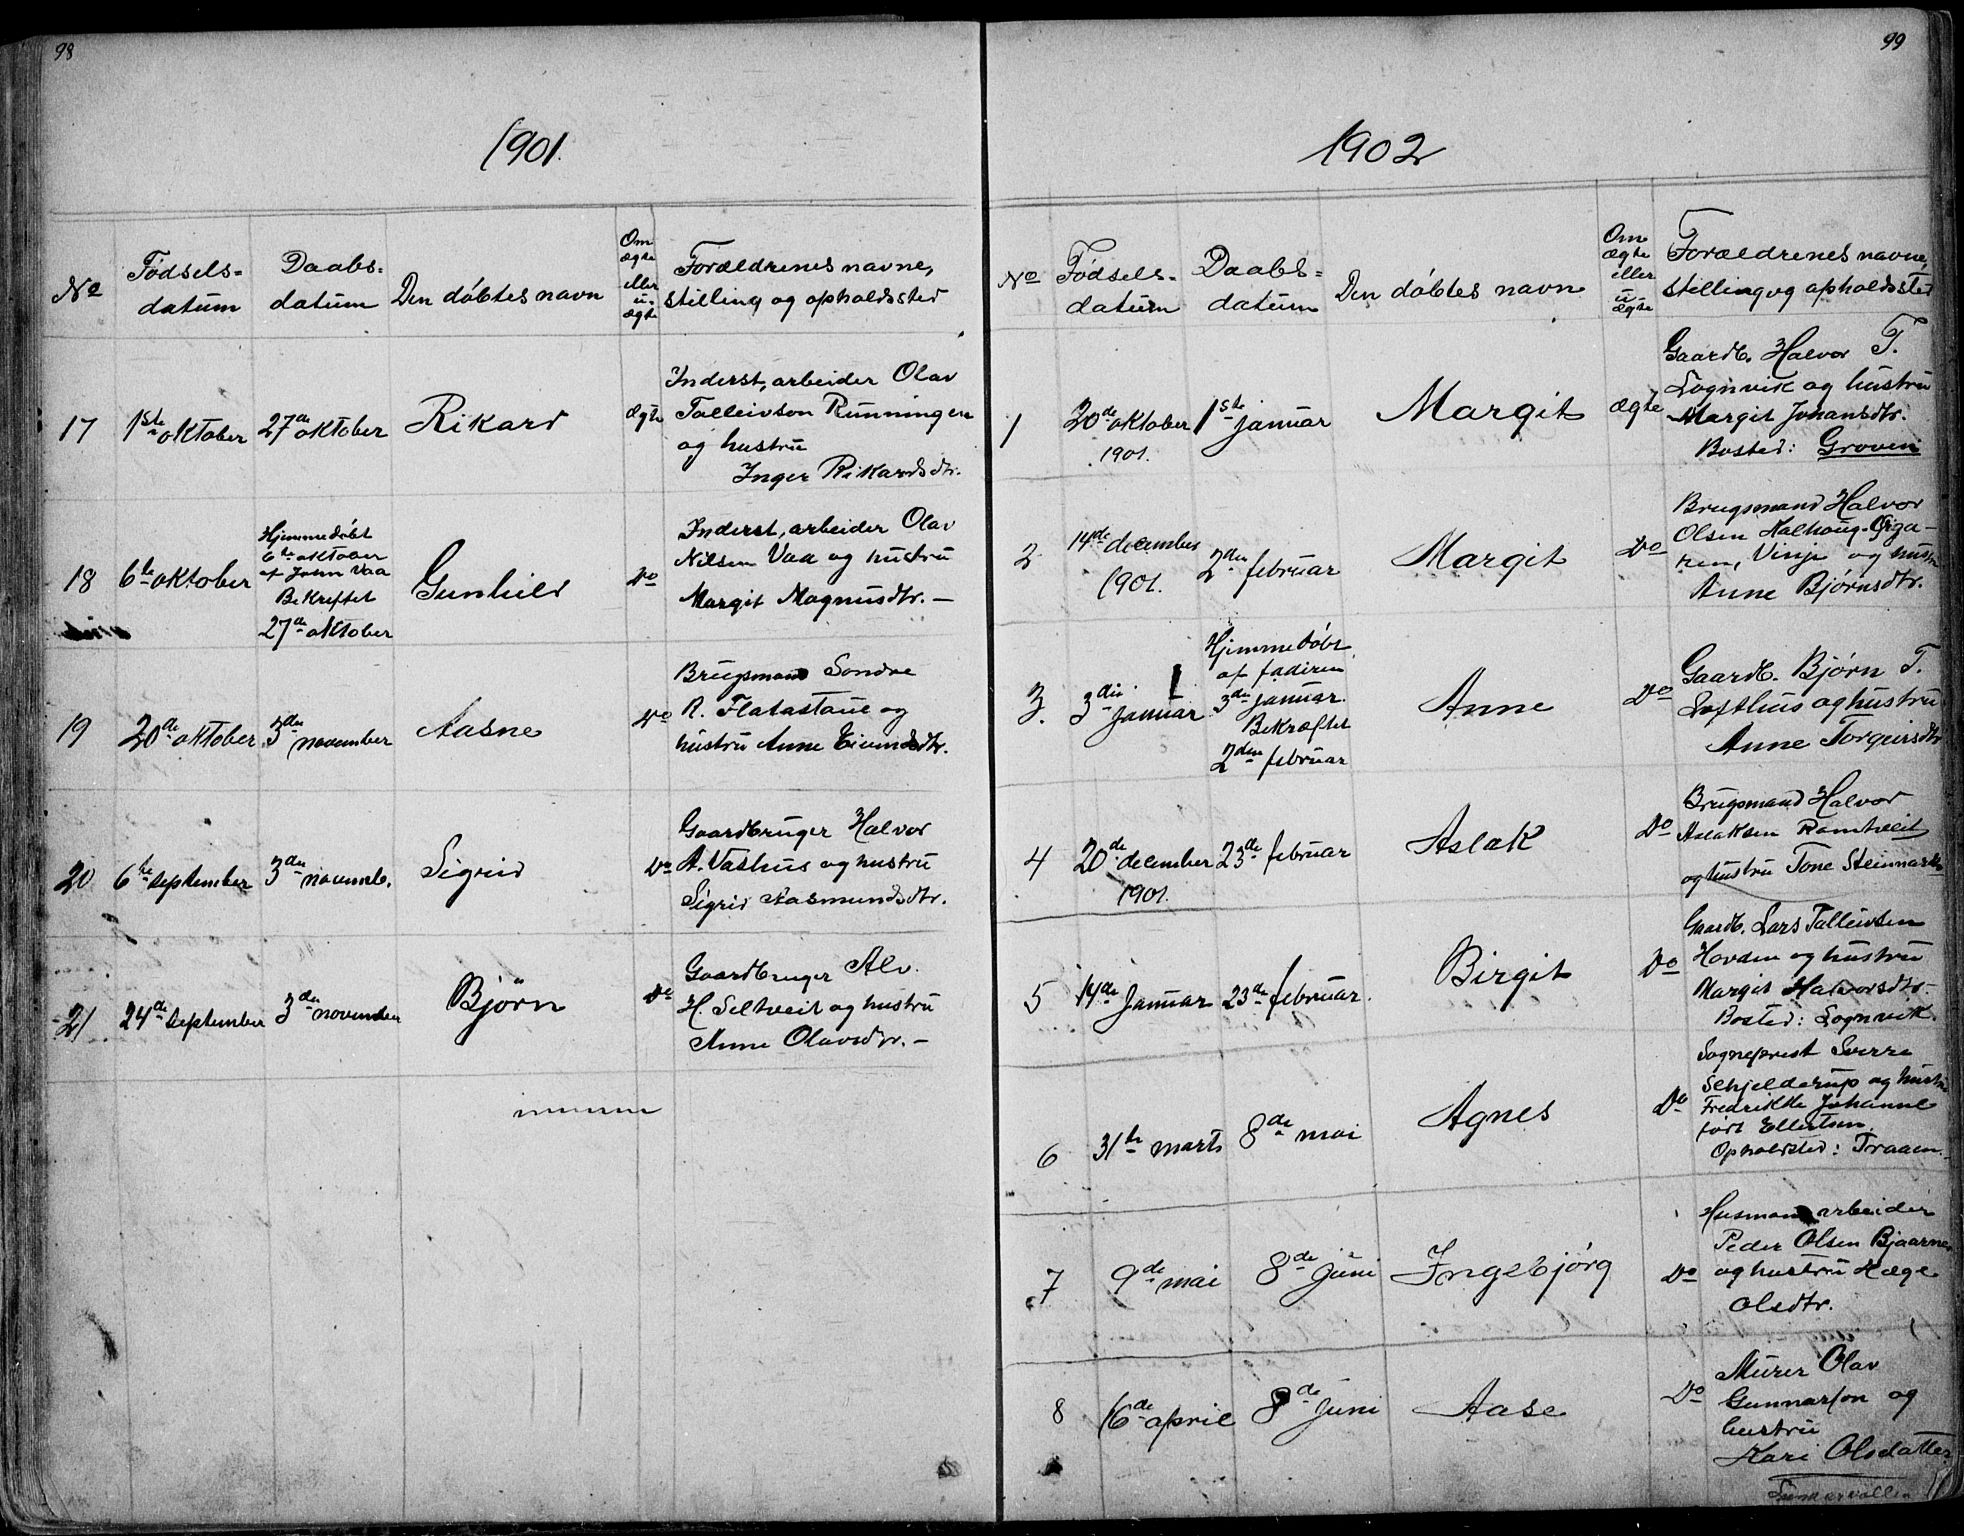 98
1901.
No
Fødsels-
datum
Daabs-
datum
Den døbtes navn
Om
ægte
eller
u-
ægte
Forældrenes navne,
stilling og opholdssted
17
1ste oktober
27de oktober
Rikard
ægte
Inderst, arbeider Olav
Talleivson Runningen
og hustru
Inger Rikardsdtr.
18
6te oktober
Hjemmedøbt
6te oktober
af John Vaa
Bekræftet
27de oktober
Gunhild
Do
Inderst, arbeider Olav
Nilsen Vaa og hustru
Margit Magnusdtr. —
19
20de oktober
3die november
Aasne
Do
Brugsmand Sondre
R. Flatastaue og
hustru Anne Eivindsdtr.
20
6te september
3die novemb.
Sigrid
Do
Gaardbruger Halvor
A. Vashus og hustru
Sigrid Aasmundsdtr.
21
24de september
3die november
Bjørn
Do
Gaardbruger Alv
H. Seltveit og hustru
Anne Olavsdtr. —
99
1902
No
Fødsels-
datum
Daabs-
datum
Den døbtes navn
Om
ægte
eller
u-
ægte
Forældrenes navne,
stilling og opholdssted
1
20de oktober
1901.
1ste januar
Margit
ægte
Gaardb. Halvor T.
Lognvik og hustru
Margit Johansdtr.
Bosted: Groven
2
14de december
1901.
2den februar
Margit
Do
Brugsmand Halvor
Olsen
Vinje og hustru
Anne Bjørnsdtr.
3.
3die januar
Hjemmedøbt
af faderen
3die januar.
Bekræftet
2den februar
Anne
Do
Gaardb. Bjørn T.
Lofthus og hustru
Anne Torgeirsdtr
4
20de december
1901.
23de februar
Aslak
Do
Brugsmand Halvor
Aslaksen Romtveit
og hustru Tone Steinarsdtr
5
14de januar
23de februar.
Birgit
Do
Gaardb. Lars Talleivsen
Hovden og hustru
Margit Halvorsdtr. —
Bosted: Lognvik.
6
31te marts
8de mai
Agnes
Do
Sogneprest Sverre
Schjelderup og hustru
Fredrikke Johanne
født Ellertsen.
Opholdsted: Traaen.
7
9de mai
8de juni
Ingebjørg
Do
Husmand arbeider
Peder Olsen Bjaarnes
og hustru Hæge
Olsdtr.
8
16de april
8de juni
Aase
Do
Murer Olav
Gunnarson og
hustru
Kari Olsdatter